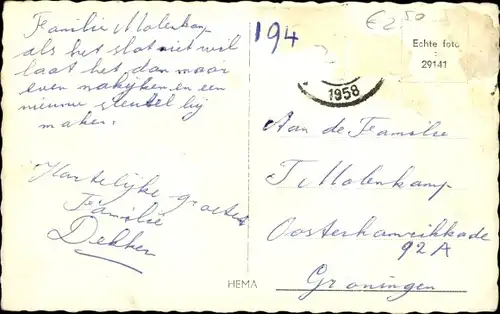 Familie Molenkamp
als het slot niet wil
laat het dan maar
even nakijken en een
nieuwe sleutel bij
maken.
Hartelijke groeten
Familie
Dekker
194
€2,50
Echte foto
29141
1958
Aan de Familie
T Molenkamp
Oosterhamrikkade
92A
Groningen
HEMA